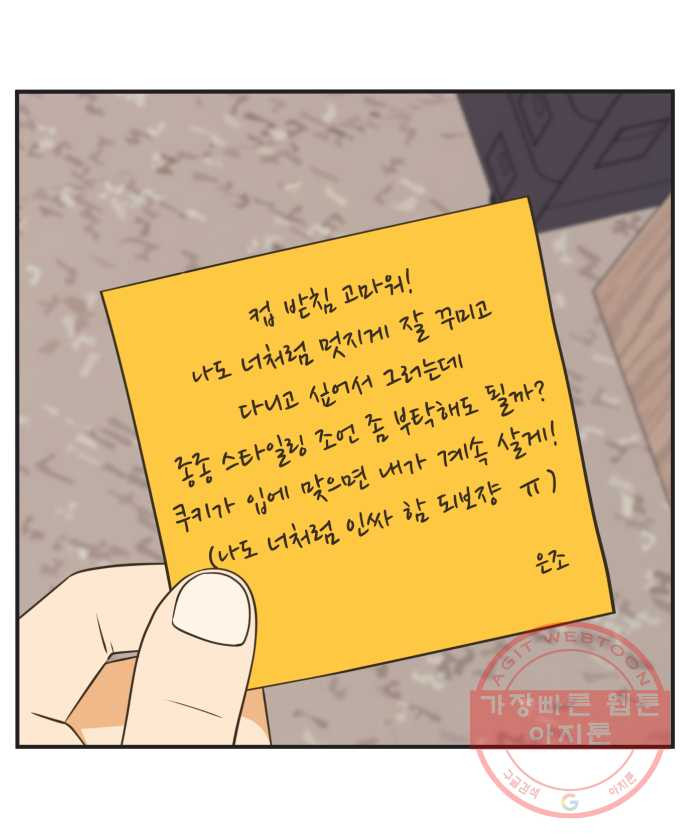 컵 받침 고마워!
나도 너처럼 멋지게 잘 꾸미고
다니고 싶어서 그러는데
종종 스타일링 조언 좀 부탁해도 될까?
쿠키가 입에 맞으면 내가 계속 살게!
(나도 너처럼 인싸 함 되보쟝 ㅠ)
은조
AGIT WEBTOON
가장빠른 웹툰
아지툰
구글검색 G 아지툰